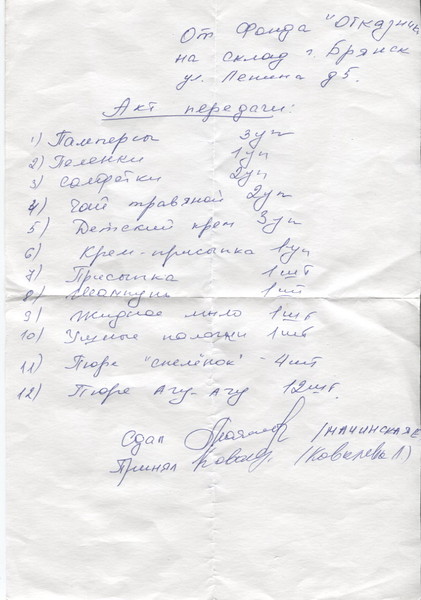 От Фонда "Отказник
на склад г. Брянск
ул. Ленина д5.
Акт передачи:
1) Памперсы 3уп
2) Пеленки 1уп
3) Салфетки 2уп
4) Чай травяной 2уп
5) Детский крем 3уп
6) Крем-присыпка 1уп
7) Присыпка 1шт
8) Шампунь 1шт
9) Жидкое мыло 1шт
10) Ушные палочки 1шт
11) Пюре "спелёнок" - 4шт
12) Пюре Агу-Агу 12шт.
Сдал /Начинская Е
Принял (Ковалева Л)